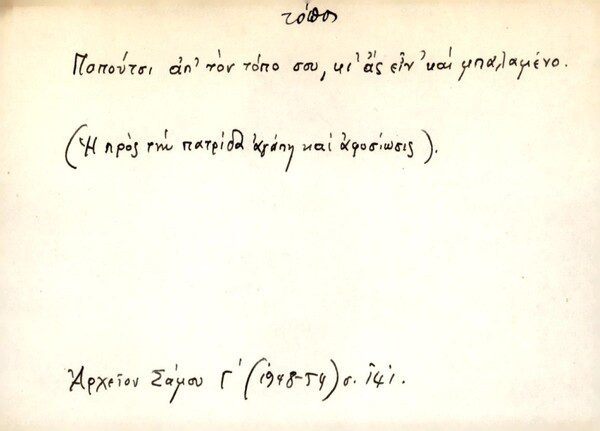 τόπος
Παπούτσι ἀπ' τὸν τόπο σου, κι' ἄς εἶν' καὶ μπαλαμένο.
(Ἡ πρὸς τὴν πατρίδα ἀγάπη καὶ ἀφοσίωσις).
Ἀρχεῖον Σάμου Γ' (1948-54) σ.